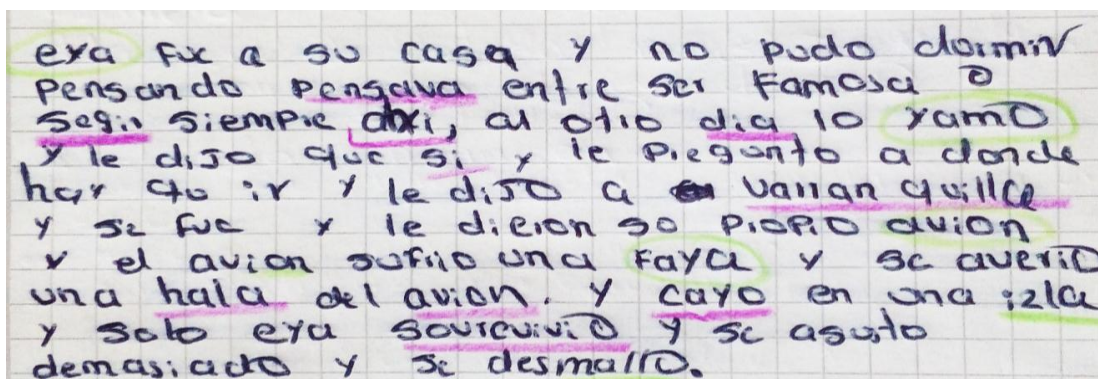 eya fue a su casa y no pudo dormir
pensando pensava entre ser famosa o
segir siempre ahi, al otro dia lo yamo
y le dijo que si y le pregunto a donde
hay que ir y le dijo a varranquilla
y se fue y le dieron su propio avion
y el avion sufrio una faya y se averio
una hala del avion. y cayo en una izla
y solo eya sovrevivio y se asusto
demasiado y se desmallo.